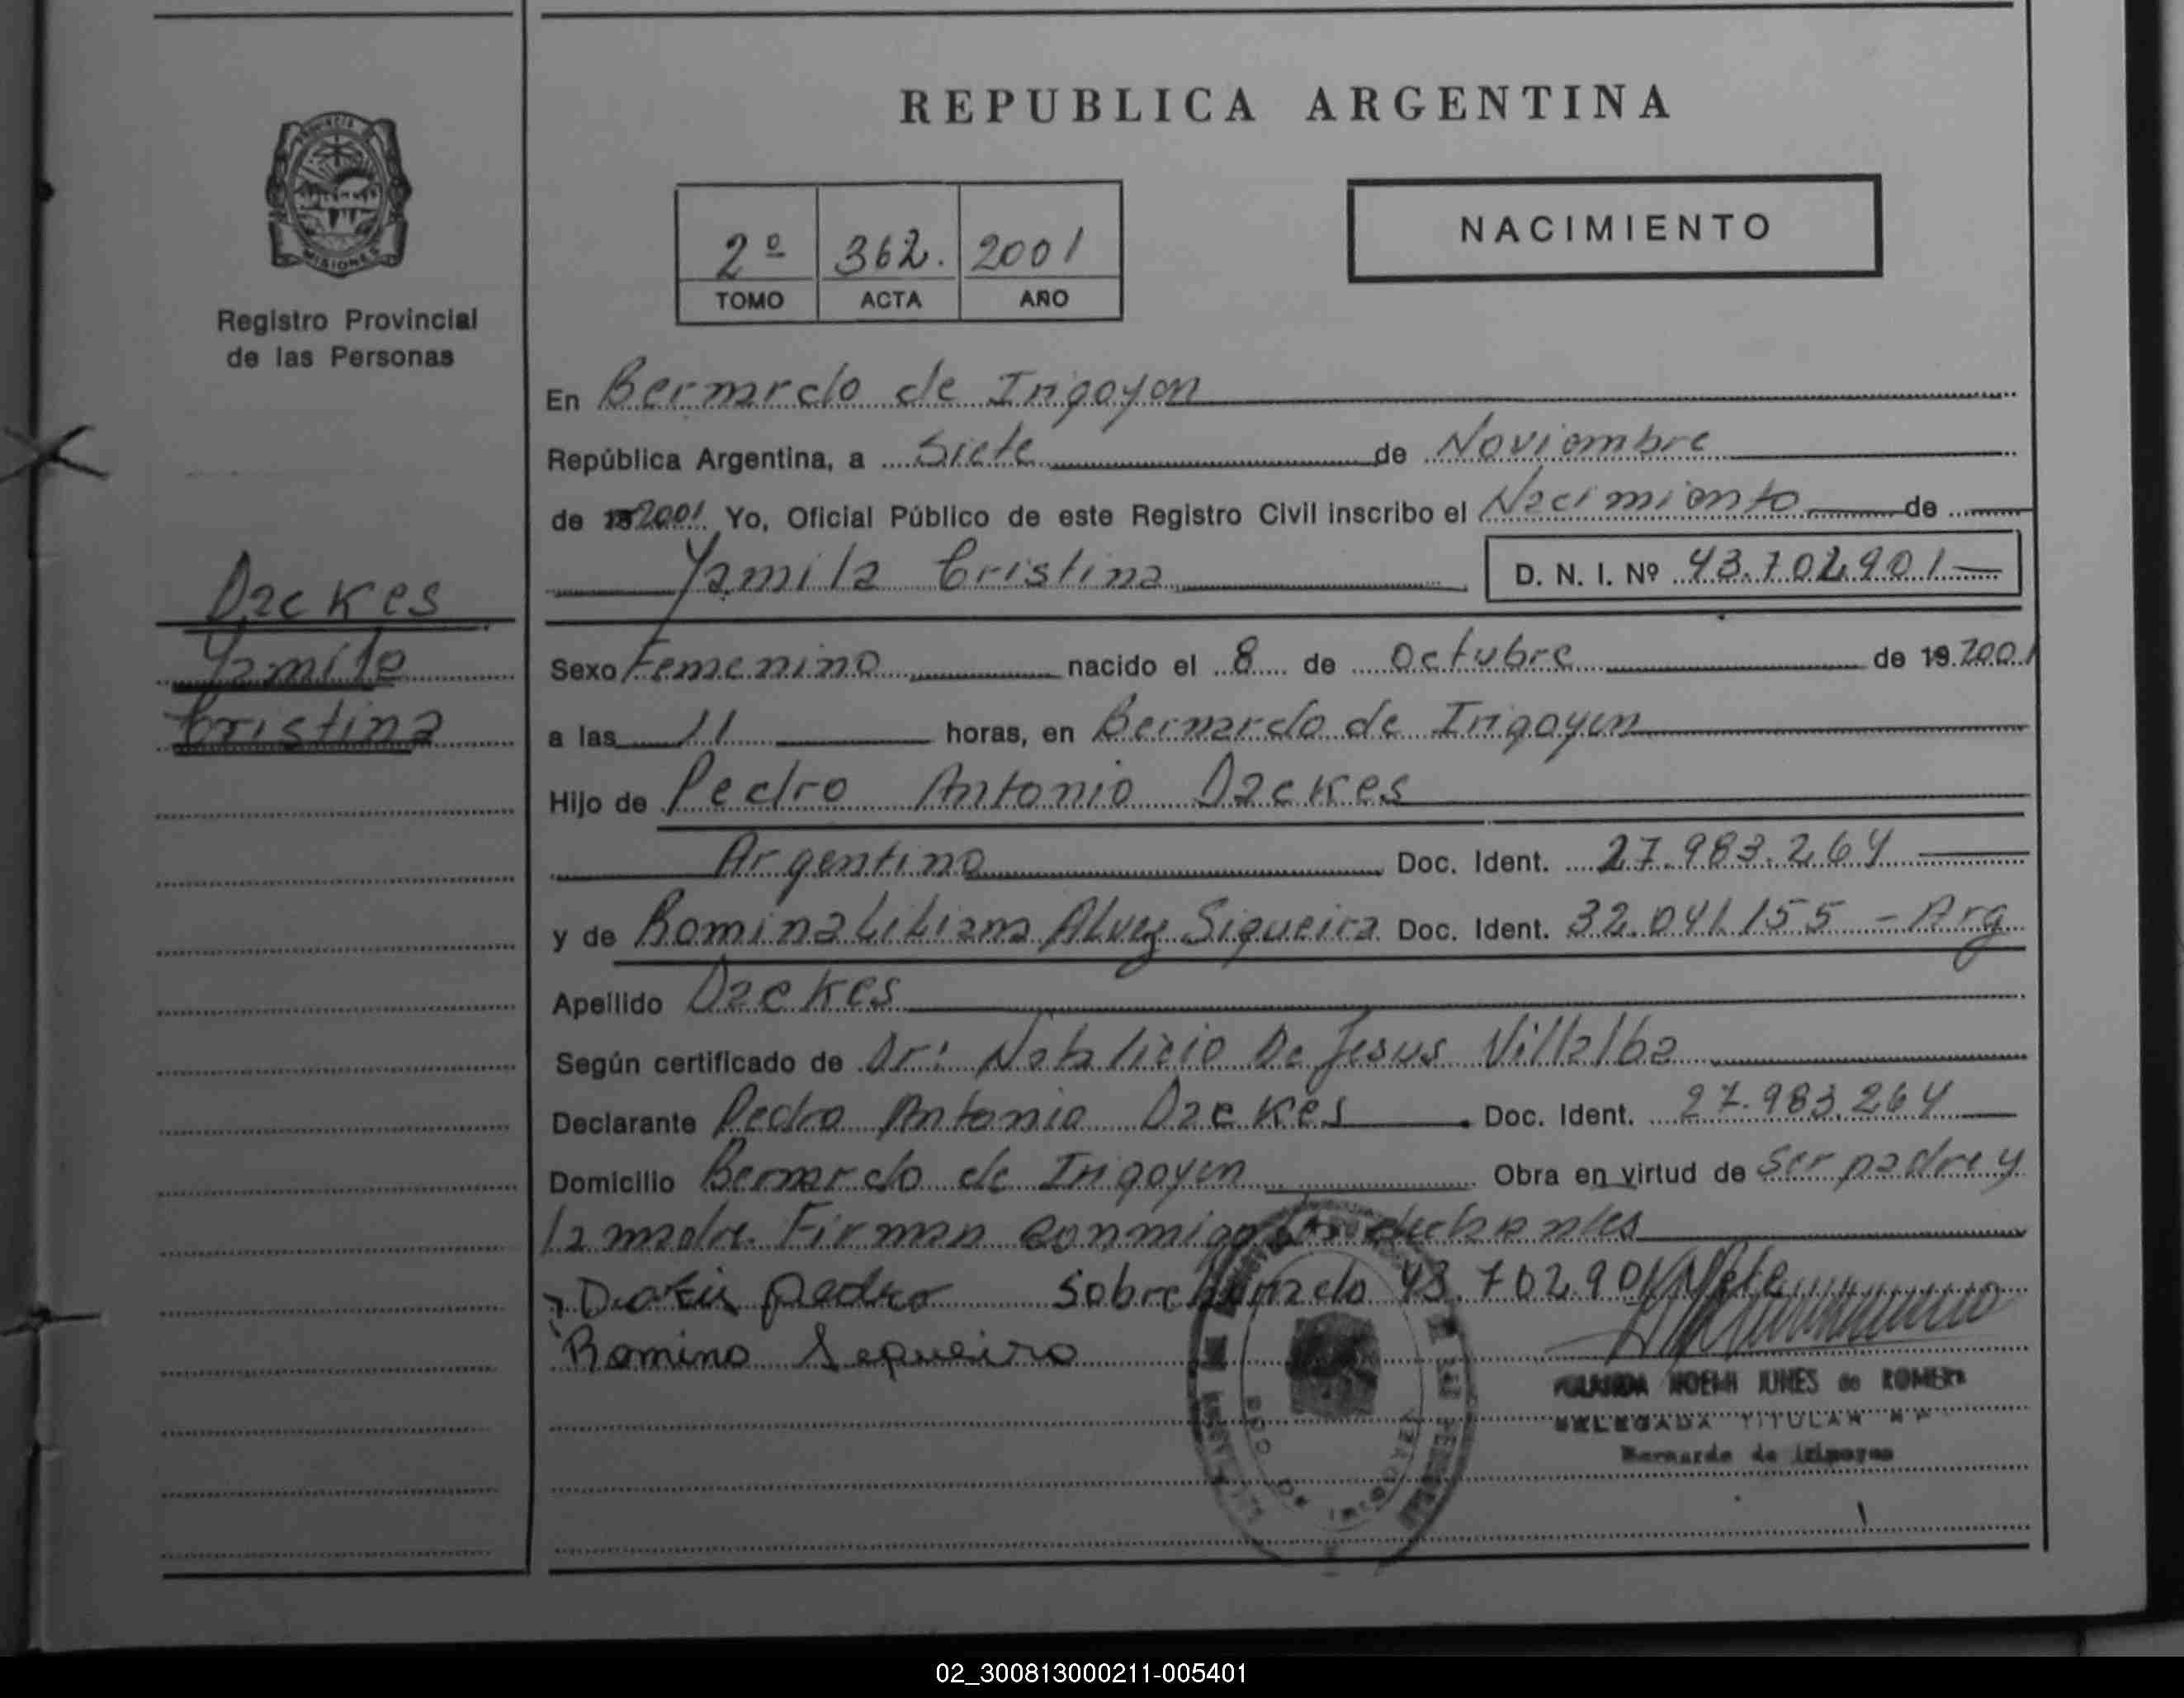 REPUBLICA ARGENTINA
PROVINCIA DE
MISIONES
Registro Provincial
de las Personas
2º 362. 2001
TOMO ACTA AÑO
NACIMIENTO
En Bernardo de Irigoyen
República Argentina, a Siete de Noviembre
de 2001 Yo, Oficial Público de este Registro Civil inscribo el Nacimiento de
Yamila Cristina D. N. I. Nº 43.702.901
Dackes
Yamila
Cristina
Sexo Femenino nacido el 8 de Octubre de 19 2001
a las 11 horas, en Bernardo de Irigoyen
Hijo de Pedro Antonio Dackes
Argentino Doc. Ident. 27.983.264
y de Romina Liliana Alvez Siqueira Doc. Ident. 32.041.155 - Arg
Apellido Dackes
Según certificado de Dr: Natalicio De Jesus Villalba
Declarante Pedro Antonio Dackes Doc. Ident. 27.983.264
Domicilio Bernardo de Irigoyen Obra en virtud de Ser padre y
la madre Firman conmigo
pedro Sobre 43.702.901 Vale
Romina Sequeira
NOEMI JUNES de ROMERO
DELEGADA TITULAR
Bernardo de Irigoyen
02_300813000211-005401